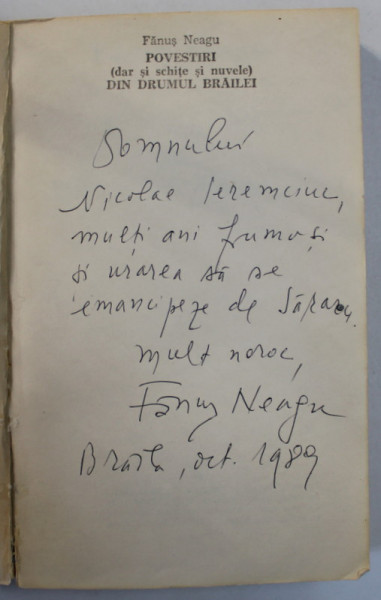 Fănuș Neagu
POVESTIRI
(dar și schițe și nuvele)
DIN DRUMUL BRĂILEI
Domnului
Nicolae Ieremciuc,
mulți ani frumoși
și urarea să se
emancipeze de
mult noroc,
Fănuș Neagu
Brăila, oct. 1989